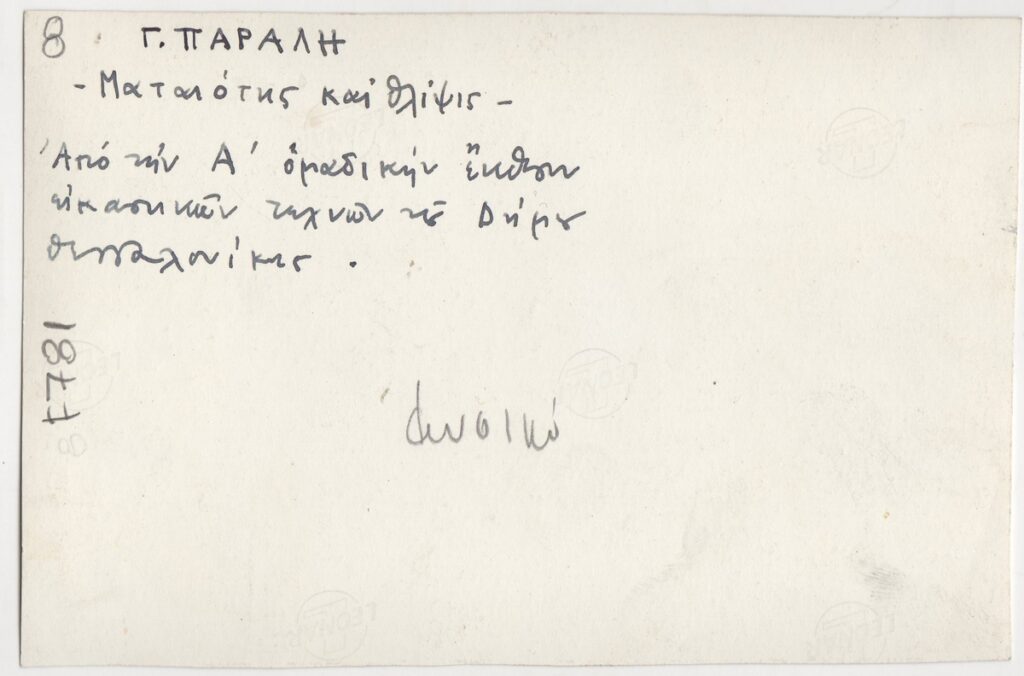 8 Γ. ΠΑΡΑΛΗ
- Ματαιότης καὶ θλίψις -
Ἀπό τήν Α' ὁμαδικήν ἔκθεσιν
εἰκαστικῶν τεχνῶν τοῦ Δήμου
Θεσσαλονίκης .
F781
Φυσικό
LEONAR